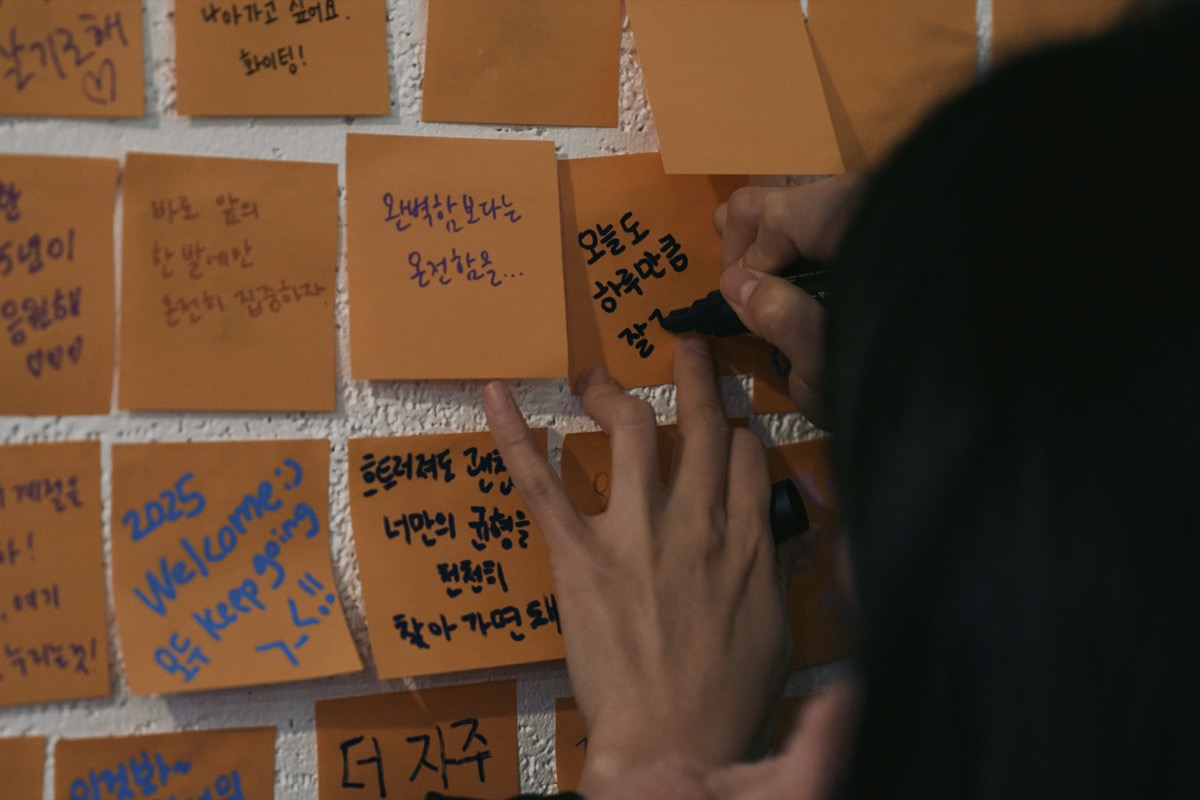 잘기로해♡
나아가고 싶어요.
화이팅!
5년이
응원해
♡♡♡
바로 앞의
한 발에만
온전히 집중하자.
완벽함보다는
온전함을...
오늘도
하루만큼
잘
계절을
여기
2025
Welcome:)
모두 keep going
ㄱ-ㄴ!!
흐트러져도
너만의 균형을
천천히
찾아가면 돼
더 자주